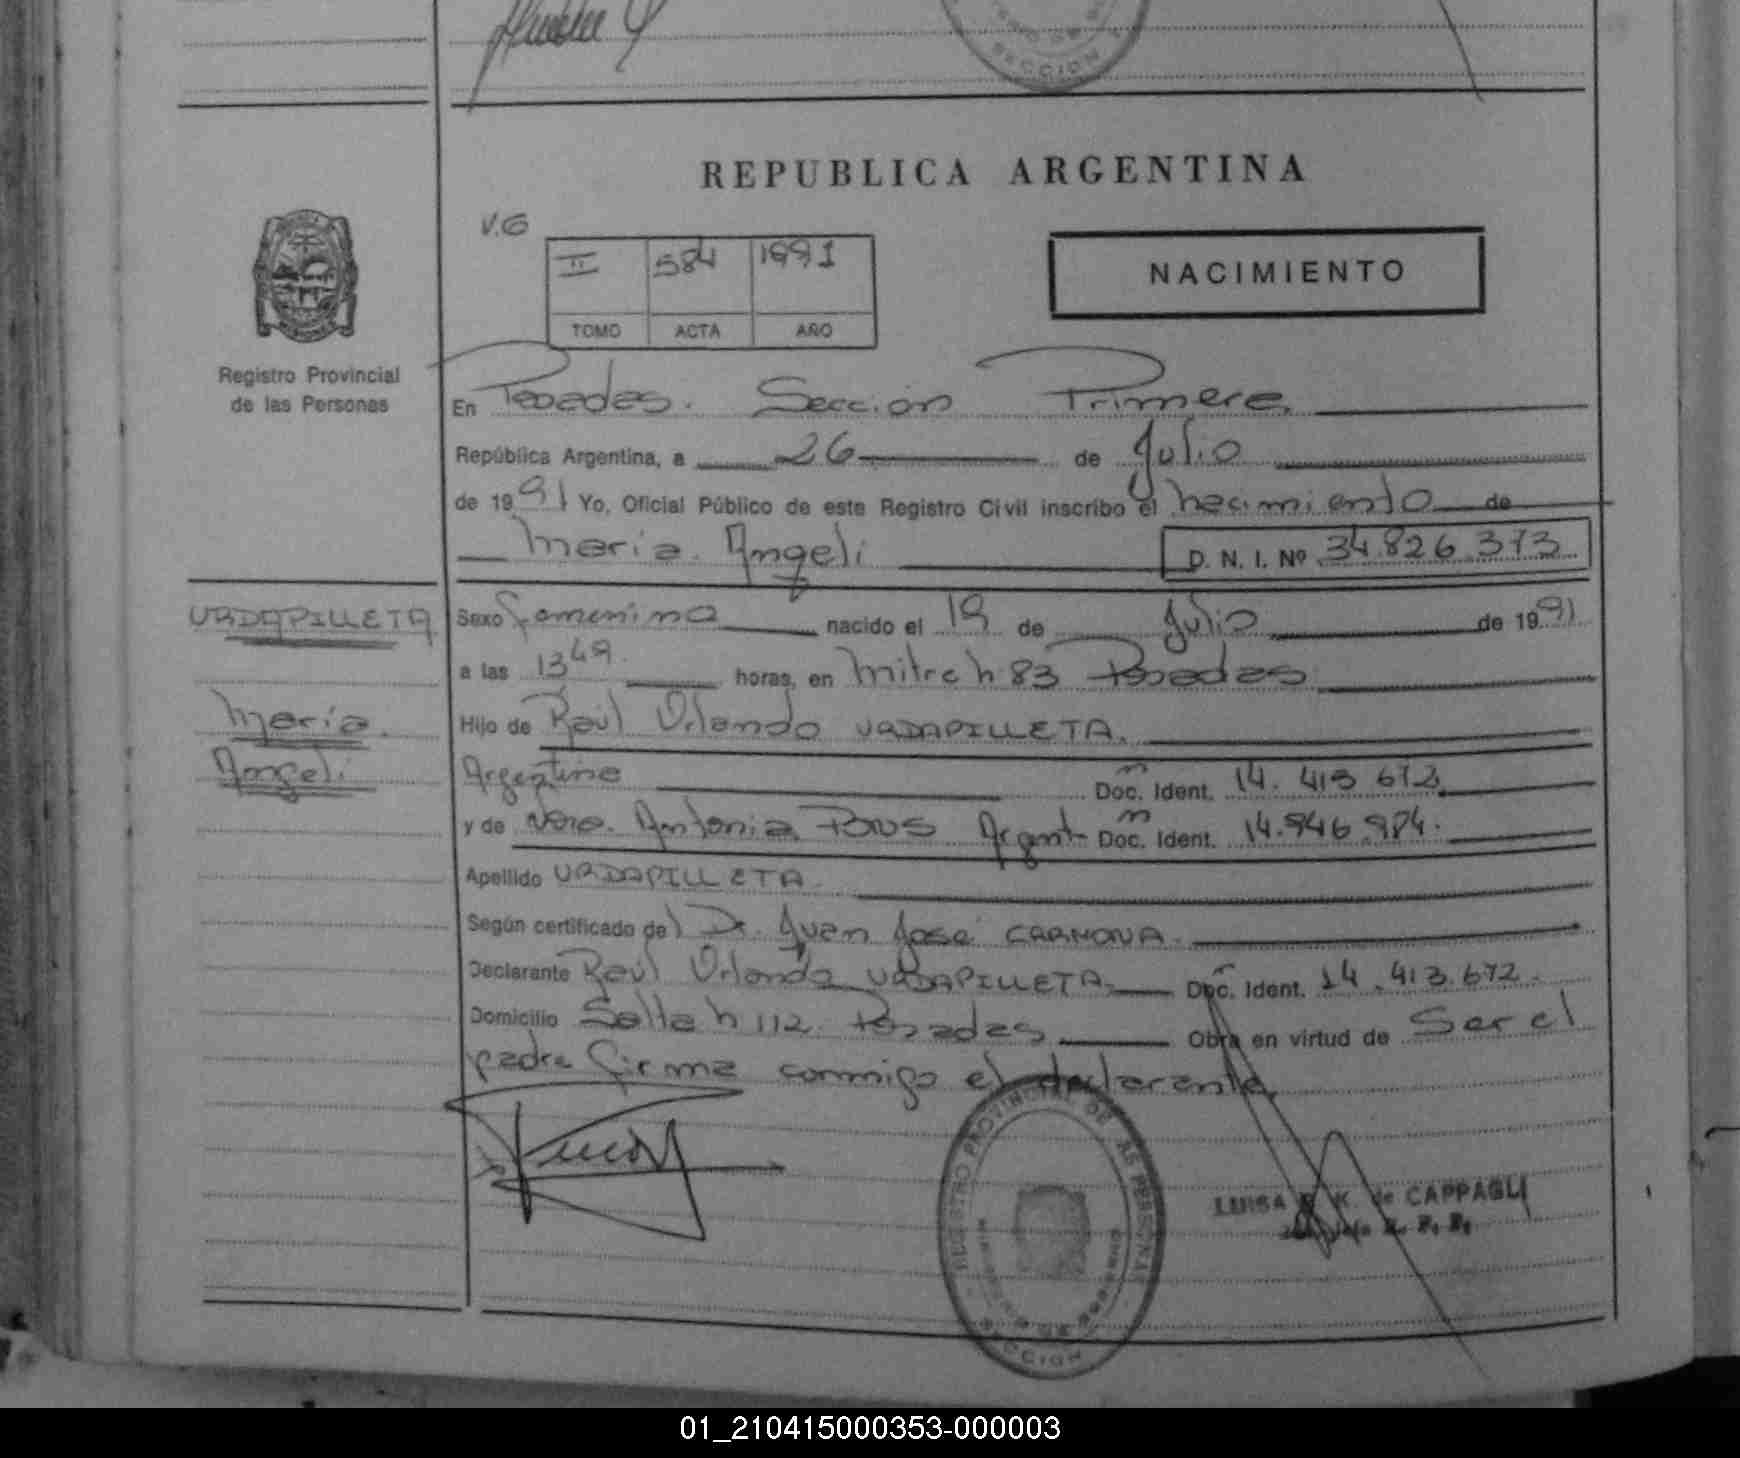 SECCION
REPUBLICA ARGENTINA
V.G
II 584 1991
TOMO ACTA AÑO
NACIMIENTO
Registro Provincial
de las Personas
En Posadas. Sección Primera.
República Argentina, a 26 de Julio
de 1991 Yo, Oficial Público de este Registro Civil inscribo el nacimiento de
María Angeli D. N. I. Nº 34.826.373
URDAPILLETA
María
Angeli
Sexo femenino nacido el 19 de Julio de 1991
a las 13 49 horas, en Mitre h 83 Posadas
Hijo de Raúl Orlando URDAPILLETA.
Argentino Doc. Ident. 14. 413 672
y de Antonia Argent Doc. Ident. 14.946.984.
Apellido URDAPILLETA
Según certificado del Dr. Juan José CARMONA.
Declarante Raúl Orlando URDAPILLETA Doc. Ident. 14.413.672.
Domicilio Salta h 112 Posadas Obra en virtud de Ser el
padre firma conmigo el declarante
REGISTRO PROVINCIAL DE LAS PERSONAS
SECCION
LUISA K. de CAPPAGLI
01_210415000353-000003